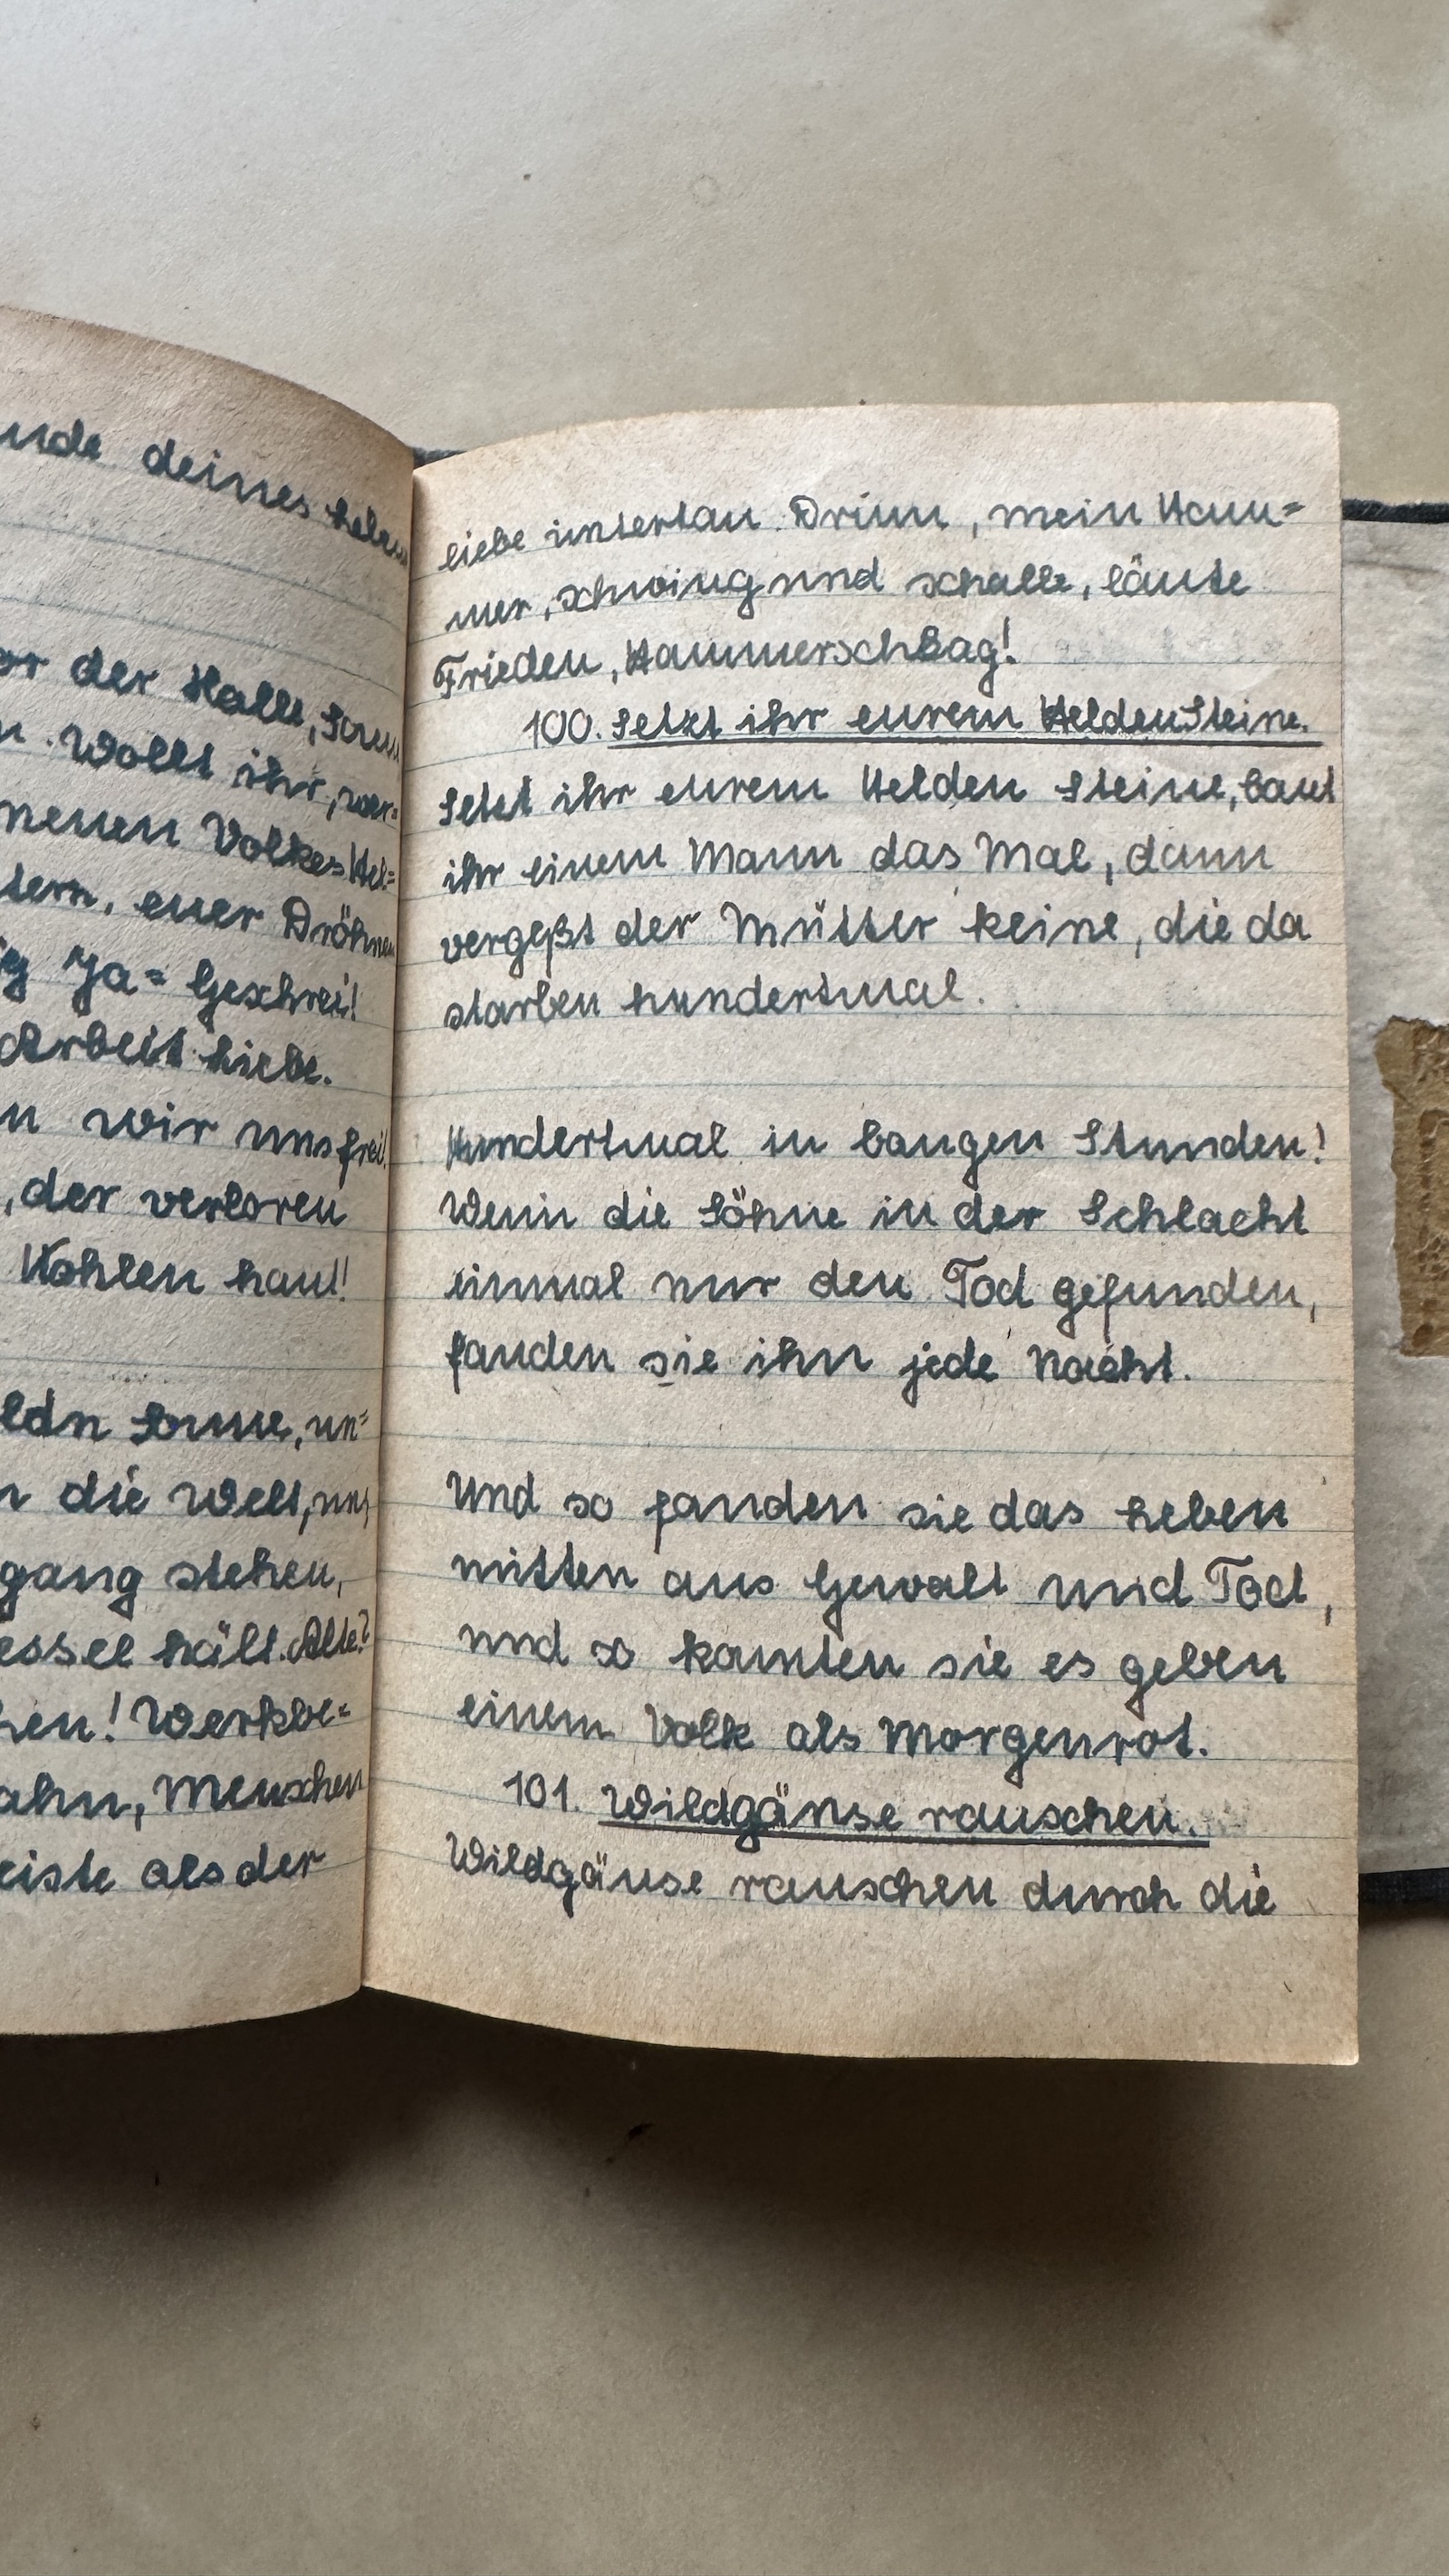 unde deines Leben
or der Halle, Sonn
n. Wollt ihr, wer=
neuen Volkes Hel=
tern, euer Dröhnen
g Ja=Geschrei!
Arbeit Liebe.
n wir uns frei!
, der verloren
Kohlen haut!
ldn Sonne, un=
n die Welt, uns
gang stehen,
essel hält. Alle?
hen! Werkbe=
ahn, Menschen
eiste als der
liebe untertan. Drum, mein Ham=
mer, schwing und schalle, läute
Frieden, Hammerschlag!
100. Setzt ihr eurem Helden Steine.
Setzt ihr eurem Helden Steine, baut
ihr einem Mann das Mal, dann
vergeßt der Mütter keine, die da
starben hundertmal.
Hundertmal in bangen Stunden!
Wenn die Söhne in der Schlacht
einmal nur den Tod gefunden,
fanden sie ihn jede Nacht.
Und so fanden sie das Leben
mitten aus Gewalt und Tod,
und so konnten sie es geben
einem Volk als Morgenrot.
101. Wildgänse rauschen.
Wildgänse rauschen durch die